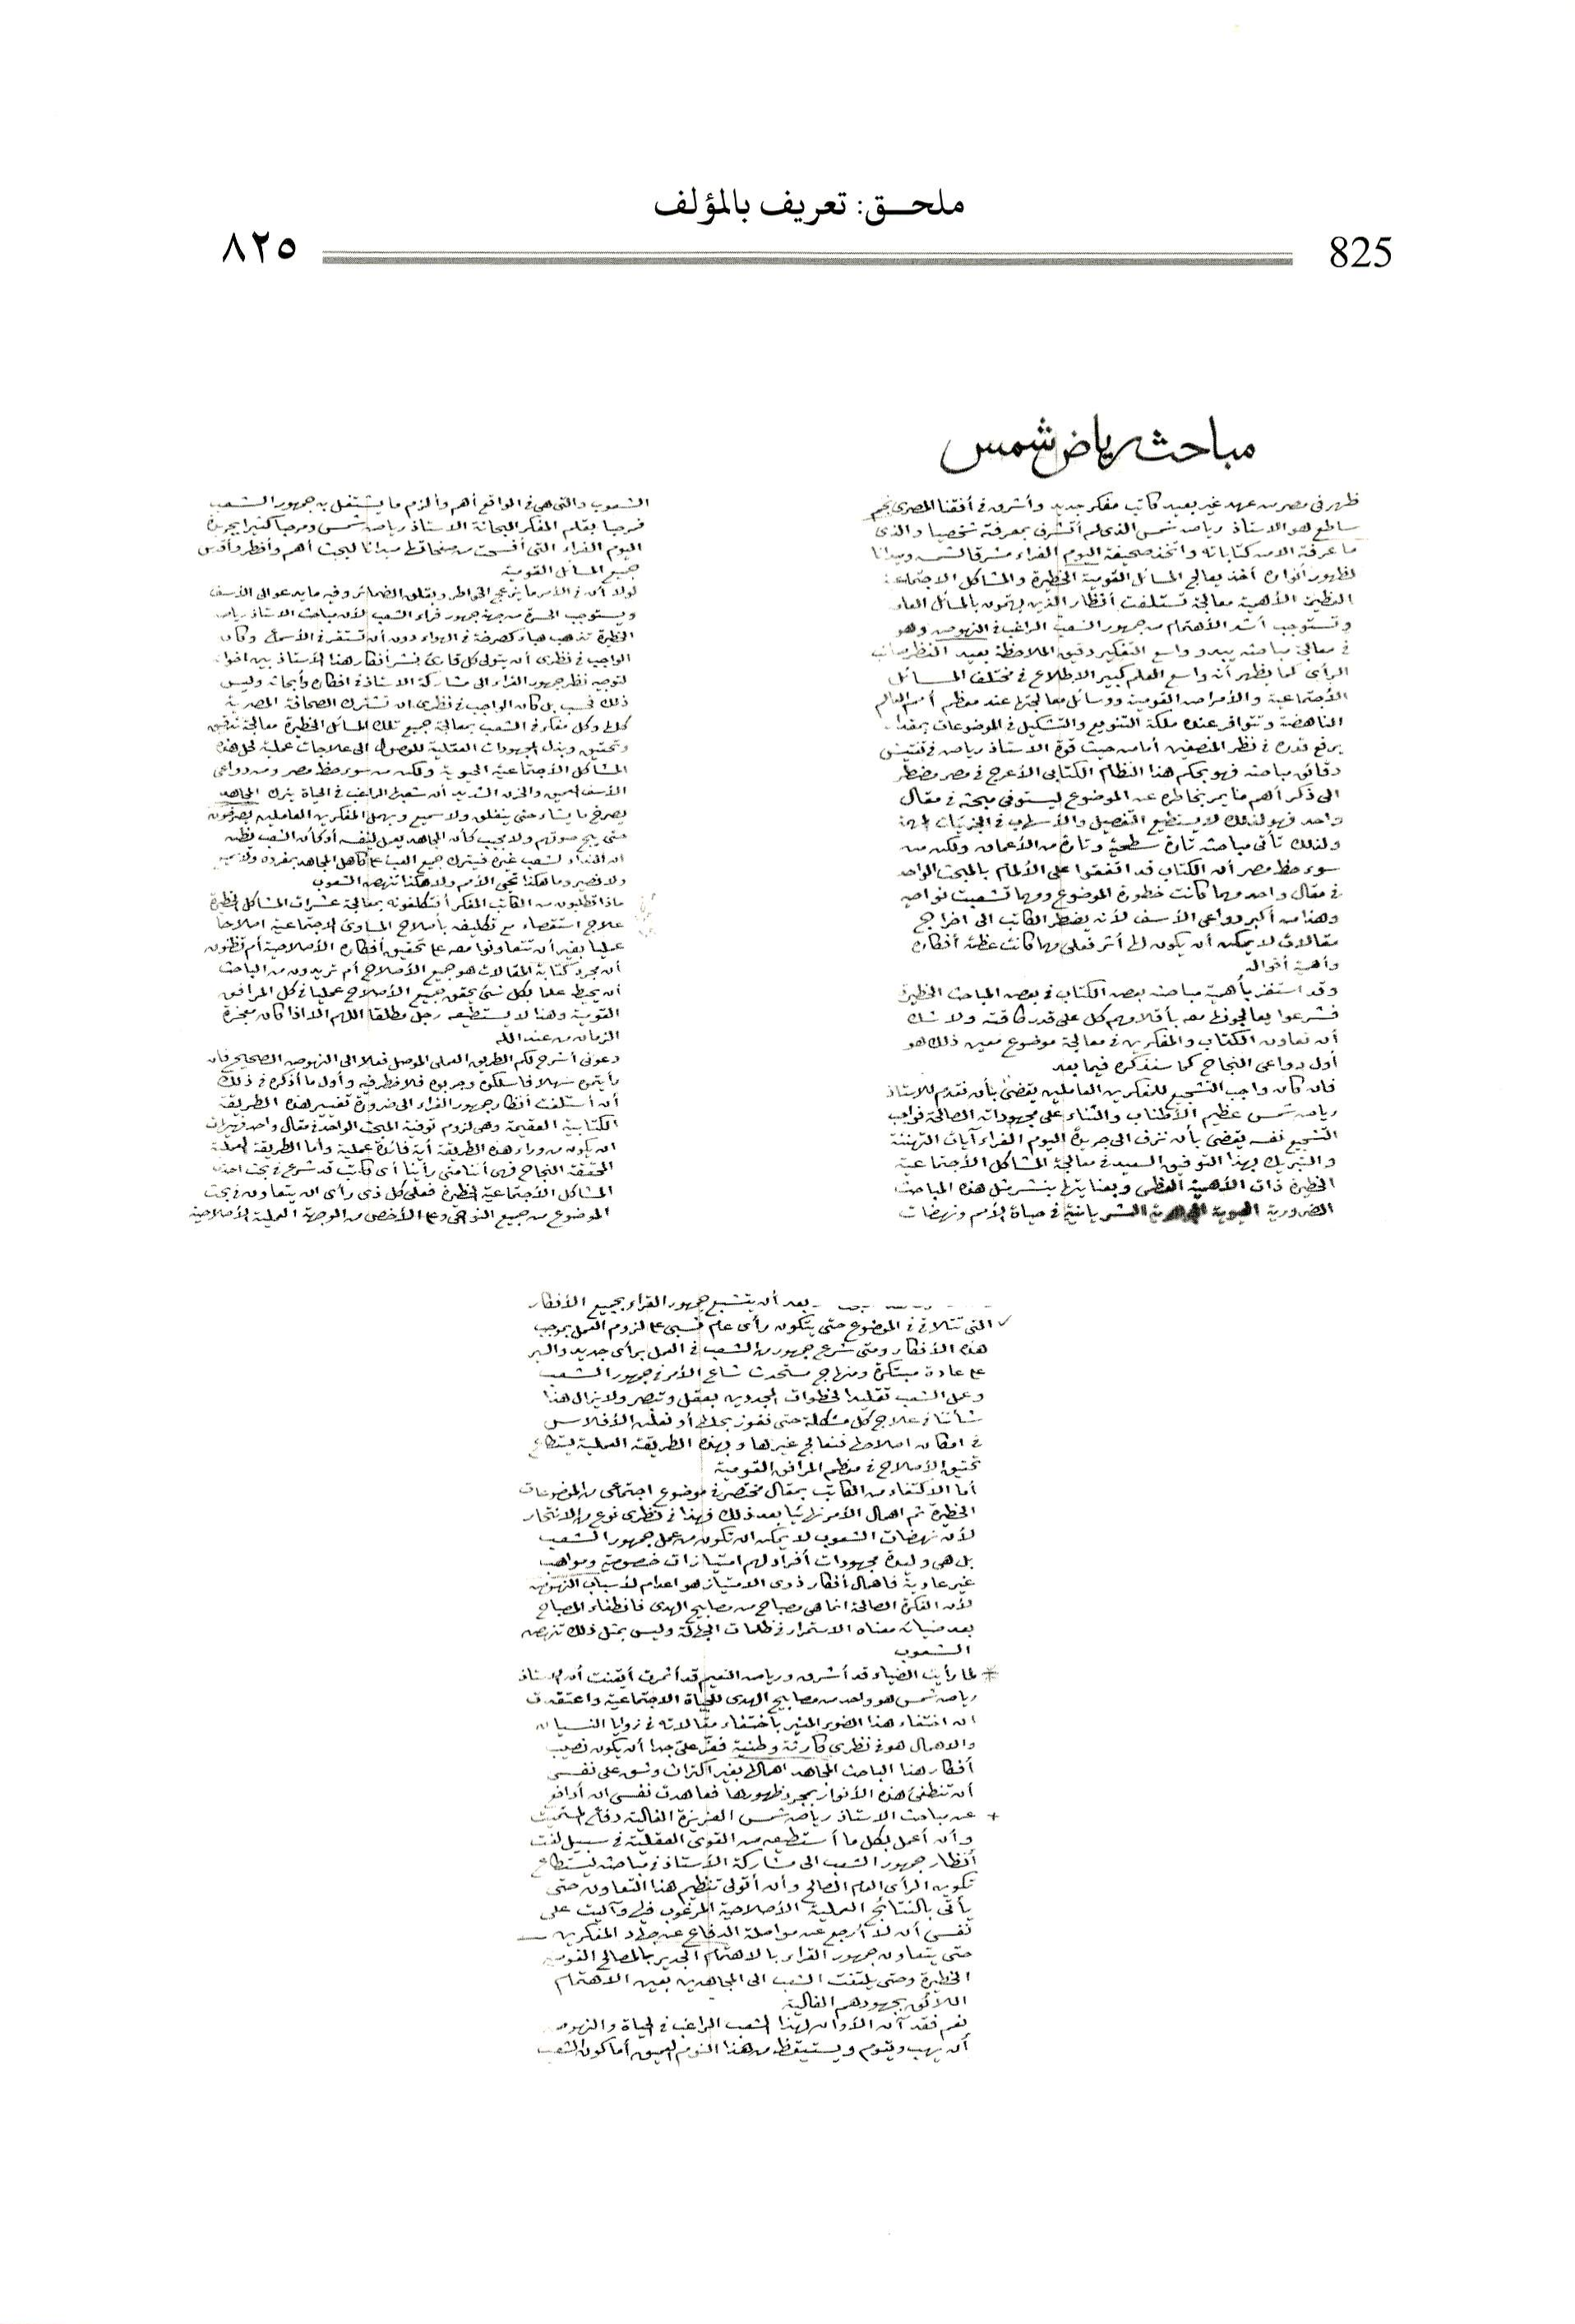 ملحـــق: تعريف بالمؤلف
825
٨٢٥
مباحث رياض شمس
ظهر فى مصر من عهد غير بعيد كاتب مفكر جديد وأشرق فى أفقنا المصرى نجم
ساطع هو الاستاذ رياض شمس الذى لم أتشرف بمعرفته شخصيا والذى
ما عرفته الا من كتاباته واتخذ صحيفة اليوم الغراء مشرقا لشمسه وميدانا
لظهور أنواره أخذ يعالج المسائل القومية الخطيرة والمشاكل الاجتماعية
العظيمة الأهمية معالجة تستلفت أنظار الذين يهتمون بالمسائل العامة
وتستوجب أشد الأهتمام من جمهور الشعب الراغب فى النهوض وهو
فى معالجة مباحثه يبدو واسع التفكير دقيق الملاحظة بعيد النظر صائب
الرأى كما يظهر أنه واسع العلم كبير الاطلاع فى مختلف المسائل
الأجتماعية والأمراض القومية ووسائل معالجتها عند معظم أمم العالم
الناهضة وتتوافر عنده ملكة التنويع والتشكيل فى الموضوعات بمقدار
يرفع قدره فى نظر المنصفين أما من حيث قوة الاستاذ رياض فى تفتيش
دقائق مباحثه فهو بحكم هذا النظام الكتابى الأعرج فى مصر مضطر
الى ذكر أهم ما يمر بخاطره عن الموضوع ليستوفى مبحثه فى مقال
واحد فهو لذلك لا يستطيع التفصيل والأسهاب فى الجزئيات الهامة
ولذلك تأتى مباحثه تارة سطحية وتارة من الأعماق ولكن من
سوء حظ مصر أن الكتاب قد اتفقوا على الألمام بالمبحث الواحد
فى مقال واحد مهما كانت خطورة الموضوع ومهما تشعبت نواحيه
وهذا من أكبر دواعى الأسف لأنه يضطر الكاتب الى اخراج
مقالات لا يمكن أن يكون لها أثر فعلى مهما كانت عظمة أفكاره
وأهمية أقواله
وقد استفز بأهمية مباحثه بعض الكتاب فى بعض المباحث الخطيرة
فشرعوا يعالجونها معه بأقلامهم كل على قدر طاقته ولا شك
أن تعاون الكتاب والمفكرين فى معالجة موضوع معين ذلك هو
أول دواعى النجاح كما سنذكره فيما بعد
فان كان واجب التشجيع للمفكرين العاملين يقضى بأن نقدم للاستاذ
رياض شمس عظيم الأطناب والثناء على مجهوداته الصالحة فواجب
التشجيع نفسه يقضى بأن نزف الى جريدة اليوم الغراء آيات التهنئة
والتبريك بهذا التوفيق السعيد فى معالجة المشاكل الأجتماعية
الخطيرة ذات الأهمية العظمى وبعنايتها بنشر مثل هذه المباحث
الضرورية الحيوية الشريانية فى حياة الأمم ونهضات
الشعوب والتى هى فى الواقع أهم وألزم ما يشتغل به جمهور الشعب
فمرحبا بقلم المفكر البحاثة الاستاذ رياض شمس ومرحبا كثيرا بجريدة
اليوم الغراء التى أفسحت من صفحاتها ميدانا لبحث أهم وأخطر وأقدس
جميع المسائل القومية
لولا أن فى الأمر ما يزعج الخواطر ويقلق الضمائر وفيه ما يدعو الى الأسف
ويستوجب الحسرة من جهة جمهور قراء الشعب لأن مباحث الاستاذ رياض
الخطيرة تذهب هباء كصرخة فى الهواء دون أن تستقر فى الأسماع وكان
الواجب فى نظرى أن يتولى كل قارئ نشر أفكار هذا الأستاذ بين اخوانه
لتوجيه نظر جمهور القراء الى مشاركة الاستاذ فى افكاره وأبحاثه وليس
ذلك فحسب بل كان الواجب فى نظرى ان تشترك الصحافة المصرية
كلها وكل مفكر فى الشعب بمعالجة جميع تلك المسائل الخطيرة معالجة تدقيق
وتحقيق وبذل المجهودات العقلية للوصول الى علاجات عملية لحل هذه
المشاكل الأجتماعية الحيوية ولكن من سوء حظ مصر ومن دواعى
الأسف العميق والحزن الشديد أن شعبنا الراغب فى الحياة يترك المجاهد
يصرخ ما يشاء حتى ينفلق ولا سميع ويهمل المفكرين العاملين يصرخون
حتى يبح صوتهم ولا مجيب كأن المجاهد يعمل لنفسه أو كأن الشعب يظن
ان النداء لشعب غيره فيترك جميع العبء على كاهل المجاهد بمفرده ولا معين
ولا نصير وما هكذا تحى الأمم ولا هكذا تنهض الشعوب
ماذا تطلبون من الكاتب المفكر أتكلفونه بمعالجة عشرات المشاكل الخطيرة
علاج استقصاء مع تكليفه بأصلاح المساوئ الاجتماعية اصلاحا
عمليا بغير أن تتعاونوا معه على تحقيق أفكاره الأصلاحية أم تظنون
أن مجرد كتابة المقالات هو جميع الأصلاح أم تريدون من الباحث
أن يحيط علما بكل شئ يحقق جميع الأصلاح عمليا فى كل المرافق
القومية وهذا لا يستطيعه رجل مطلقا اللهم الا اذا كان معجزة
الزمان من عند الله
دعونى أشرح لكم الطريق العملى الموصل فعلا الى النهوض الصحيح فان
رأيتموه سهلا فاسلكوه وجربوه فلا خطر فيه وأول ما أذكره فى ذلك
أن أستلفت أنظار جمهور القراء الى ضرورة تغيير هذه الطريقة
الكتابية العقيمة وهى لزوم توفية المبحث الواحد فى مقال واحد فهيهات
ان يكون من وراء هذه الطريقة أية فائدة عملية وأما الطريقة العملية
المحققة النجاح فهى أننا متى رأينا أى كاتب قد شرع فى بحث احدى
المشاكل الأجتماعية الخطيرة فعلى كل ذى رأى ان يتعاون فى بحث
الموضوع من جميع النواحى وعلى الأخص من الوجهة العملية الأصلاحية
بعد أن يتشبع جمهور القراء بجميع الأفكار
التى تتلاقى فى الموضوع حتى يتكون رأى عام نسبى على لزوم العمل بموجب
هذه الأفكار ومتى شرع جمهور من الشعب فى العمل برأى جديد والسير
على عادة مبتكرة ومنهاج مستحدث شاع الأمر فى جمهور الشعب
وعمل الشعب تقليدا لخطوات المجددين بعقل وتبصر ولا يزال هذا
شأننا فى علاج كل مشكلة حتى نفوز بحلها أو نعلن الأفلاس
فى امكان اصلاحها فنعالج غيرها وبهذه الطريقة العملية يستطاع
تحقيق الأصلاح فى معظم المرافق القومية
أما الأكتفاء من الكاتب بمقال مختصر فى موضوع اجتماعى من الموضوعات
الخطيرة ثم اهمال الأمر نهائيا بعد ذلك فهذا فى نظرى نوع من الانتحار
لأن نهضات الشعوب لا يمكن ان تكون من عمل جمهور الشعب
بل هى وليدة مجهودات أفراد لهم امتيازات خصوصية ومواهب
غير عادية فاهمال أفكار ذوى الامتياز هو اعدام لأسباب النهوض
لأن الفكرة الصالحة انما هى مصباح من مصابيح الهدى فانطفاء المصباح
بعد ضيائه معناه الاستمرار فى ظلمات الجهالة وليس بمثل ذلك تنهض
الشعوب
لما رأيت الضياء قد أشرق ورياض النعيم قد أثمرت أيقنت أن الاستاذ
رياض شمس هو واحد من مصابيح الهدى للحياة الاجتماعية واعتقدت
ان اختفاء هذا الضوء المنير باختفاء مقالاته فى زوايا النسيان
والاهمال هو فى نظرى كارثة وطنية فعز على جدا أن يكون نصيب
أفكار هذا الباحث المجاهد اهمالها بغير اكتراث وشق على نفسى
أن تنطفئ هذه الأنوار بمجرد ظهورها فعاهدت نفسى ان أدافع
عن مباحث الاستاذ رياض شمس العزيزة الغالية دفاع المستميت
وأن أعمل بكل ما أستطيعه من القوى العقلية فى سبيل لفت
أنظار جمهور الشعب الى مشاركة الأستاذ فى مباحثه ليستطاع
تكوين الرأى العام الصالح وأن أتولى تنظيم هذا التعاون حتى
يأتى بالنتائج العملية الأصلاحية المرغوب فيها وآليت على
نفسى أن لا أرجع عن مواصلة الدفاع عن جهاد المفكرين
حتى يتعاون جمهور القراء بالاهتمام الجدير بالمصالح القومية
الخطيرة وحتى يلتفت الشعب الى المجاهدين بعين الاهتمام
اللائق بجهودهم الغالية
نعم فقد آن الأوان لهذا الشعب الراغب فى الحياة والنهوض
أن يهب ويقوم ويستيقظ من هذا النوم العميق أما كون الشعب